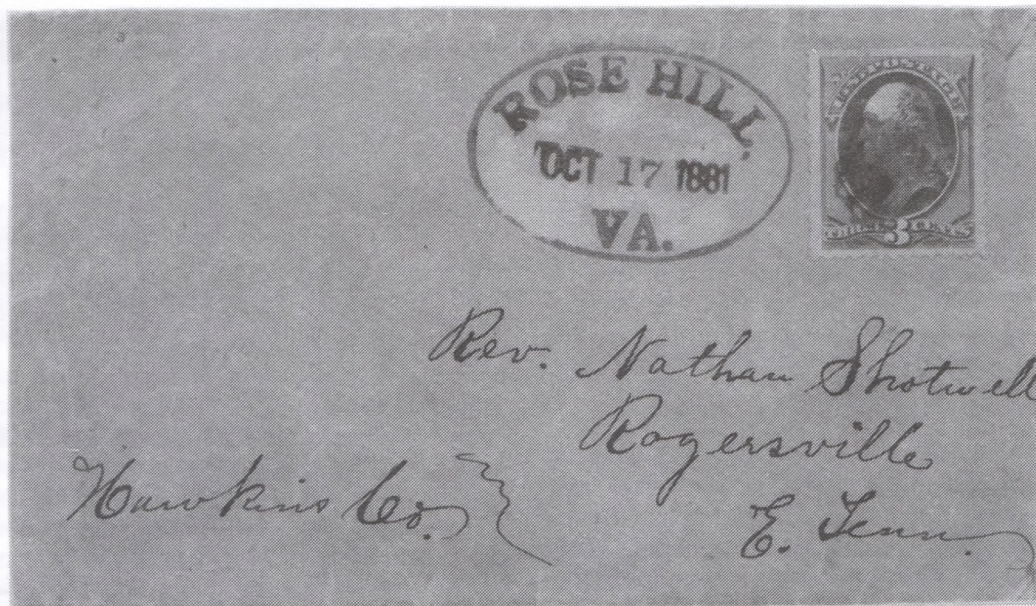 ROSE HILL,
OCT 17 1881
VA.
U.S. POSTAGE
THREE 3 CENTS
Rev. Nathan Shotwell
Rogersville
Hawkins Co.
E. Tenn.